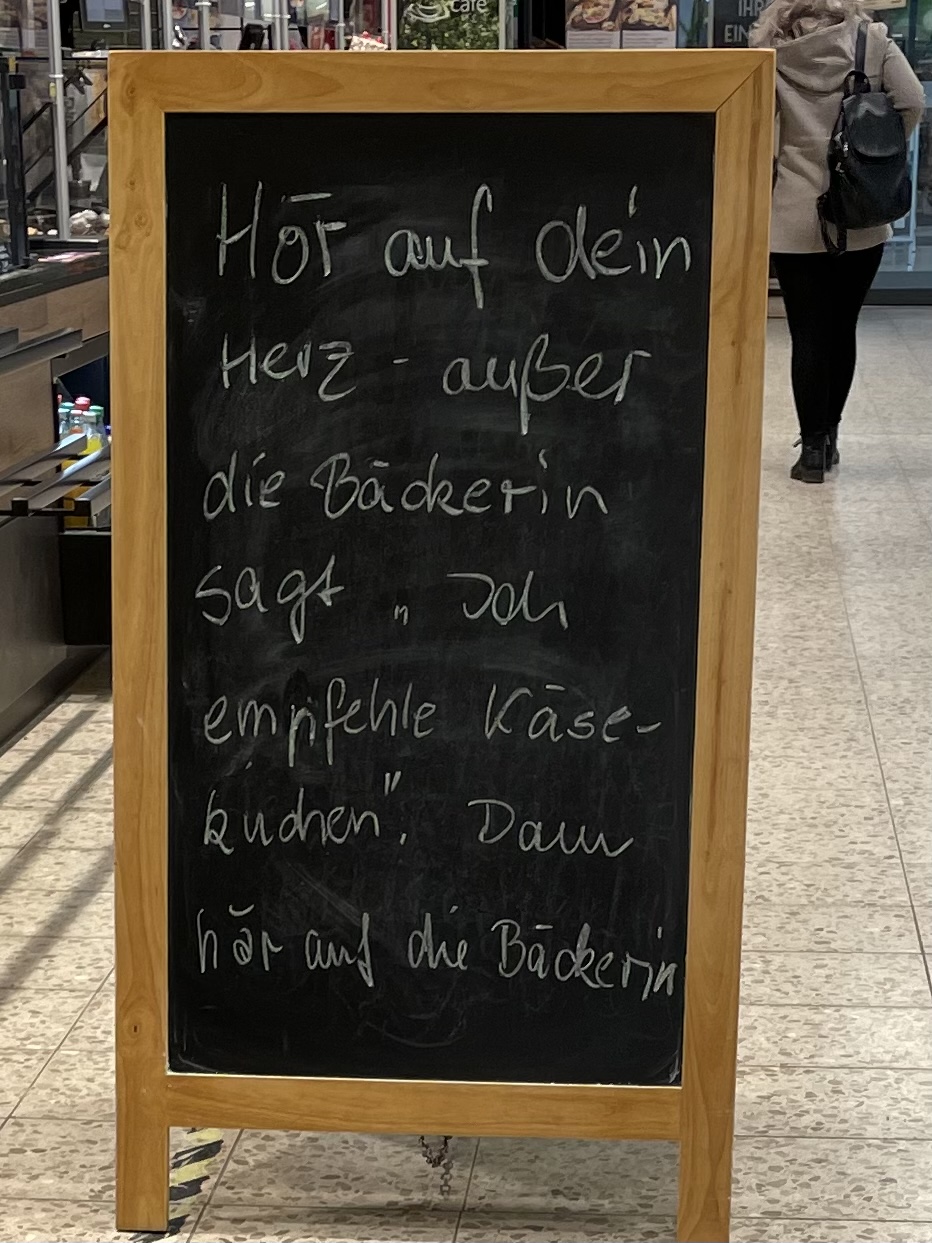 café
IHR
EIN
Hör auf dein
Herz - außer
die Bäckerin
sagt „ Ich
empfehle Käse-
kuchen". Dann
hör auf die Bäckerin